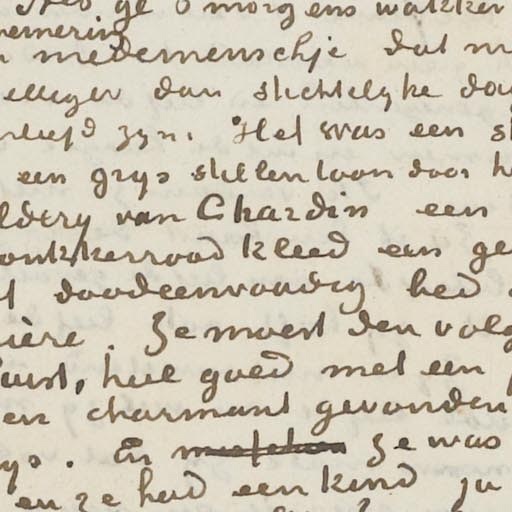 ge s'morgens wakker
nemering
medemenschje dat m
elliger dan stichtelyke do
zyn. Het was een s
een grys stillen toon door h
ldery van Chardin een
onkkerrood kleed een ge
t doodeenvoudig hed
ière. Ze moest den volg
heel goed met een
en charmant gevonden
ys. En ze was
en ze had een kind ja